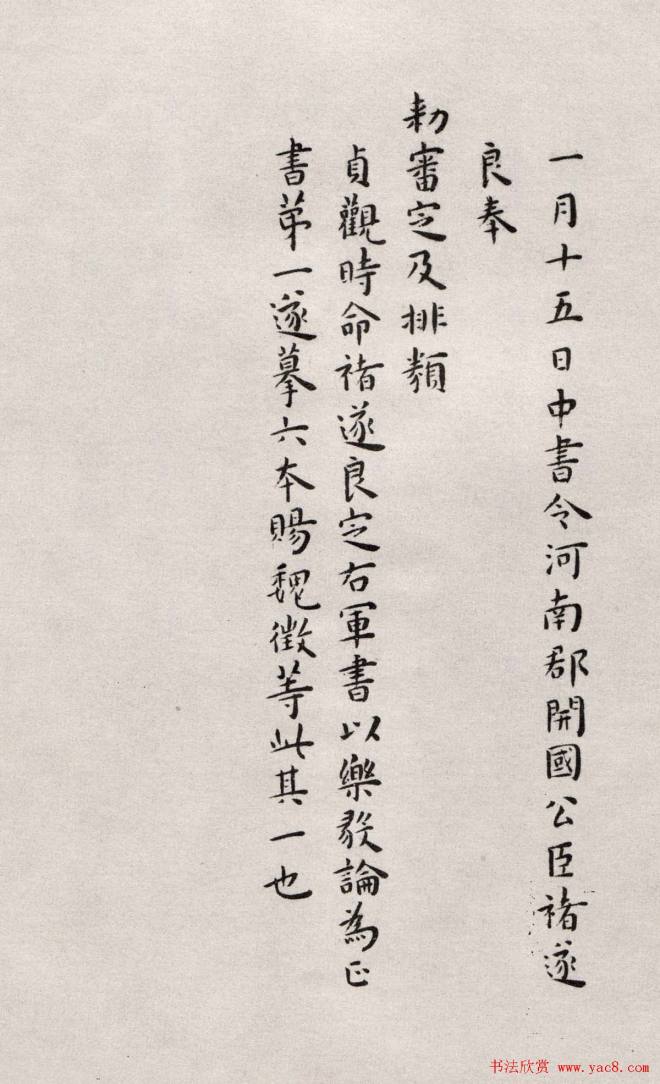 一月十五日中書令河南郡開國公臣褚遂
良奉
勑審定及排類
貞觀時命褚遂良定右軍書以樂毅論為正
書苐一遂摹六本賜魏徵等此其一也
书法欣赏 www.yac8.com